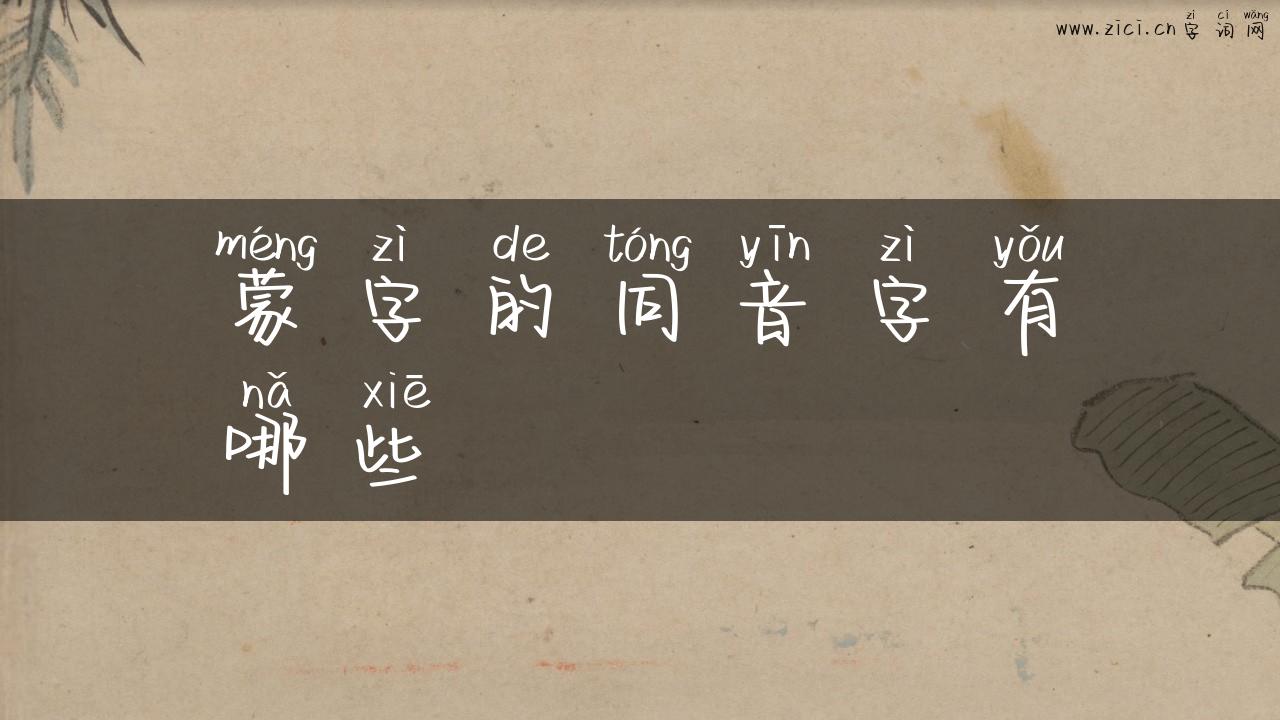 zì cí wǎng
www.zici.cn 字词网
méng zì de tóng yīn zì yǒu
蒙字的同音字有
nǎ xiē
哪些